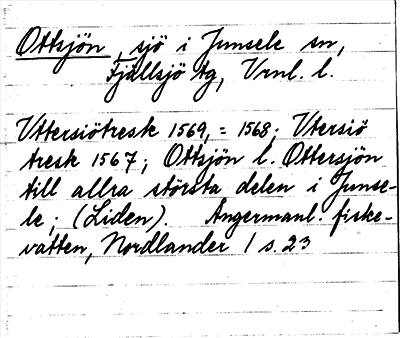 Ottsjön, sjö i Junsele sn,
Fjällsjö tg, Vrnl. l.
Uttersiötresk 1569, = 1568; Utersiö
tresk 1567; Ottsjön l. Ottersjön
till allra största delen i Junse-
le; (Liden). Ångermanl. fiske-
vatten, Nordlander / s. 23